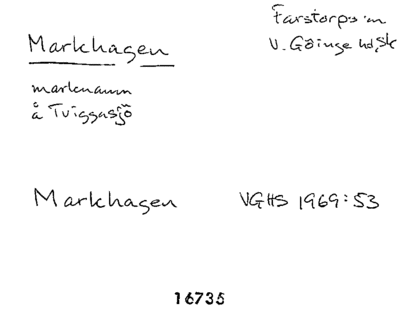 Markhagen
Farstorps sn
V. Göinge hd, Sk
marknamn
å Tviggasjö
Markhagen
VGHS 1969:53
16735